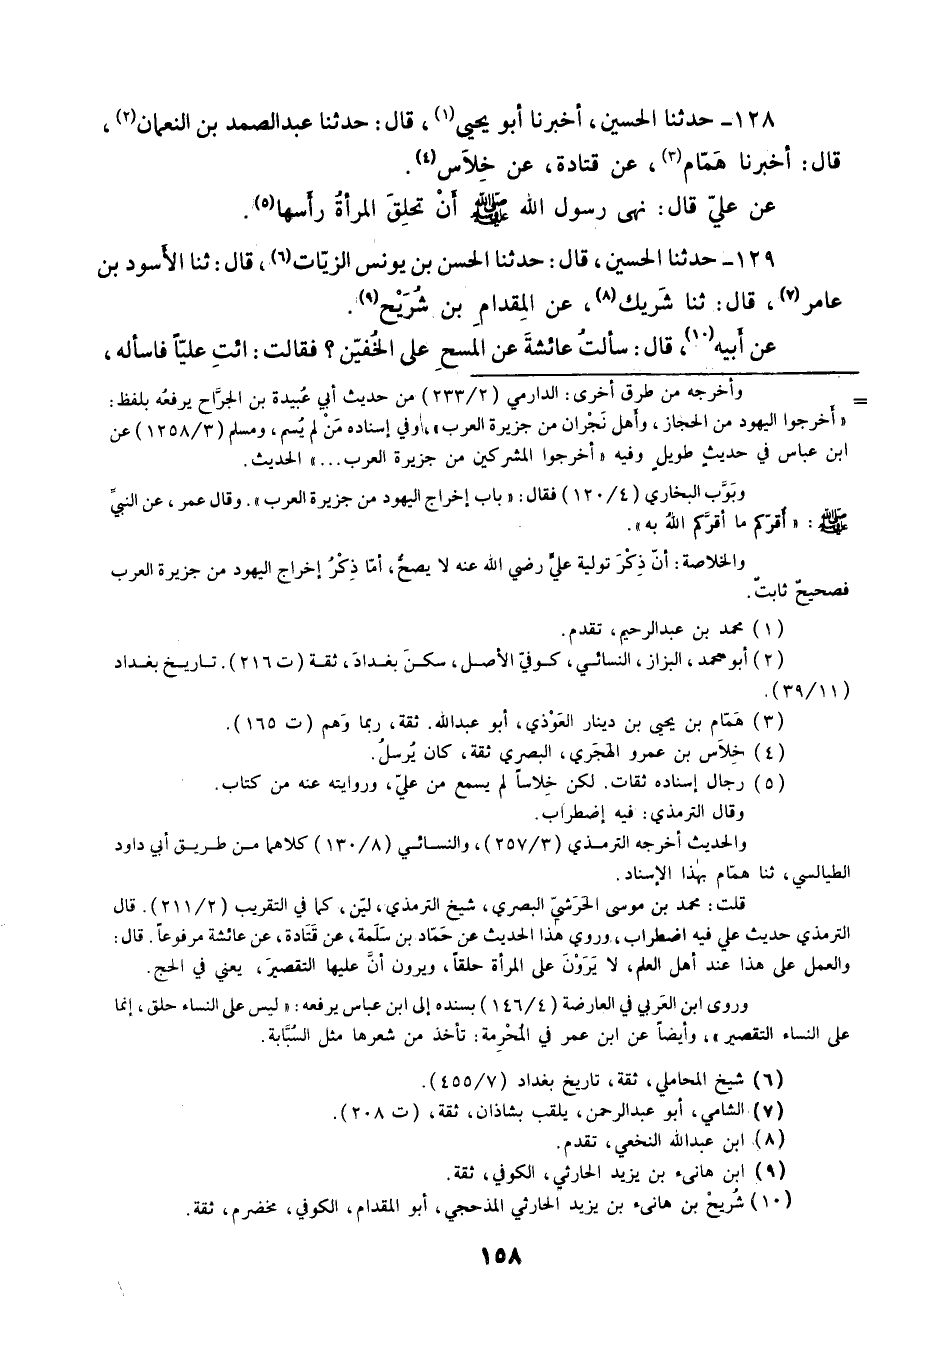 ١٢٨ـ حدثنا الحسين، أخبرنا أبو يحيى(١)، قال: حدثنا عبدالصمد بن النعمان(٢)،
قال: أخبرنا هَمّام(٣)، عن قتادة، عن خِلاَس(٤).
عن عليّ قال: نهى رسول الله ﷺ أَنْ تحلِقَ المرأةُ رأسها(٥).
١٢٩ـ حدثنا الحسين، قال: حدثنا الحسن بن يونس الزيّات(٦)، قال: ثنا الأسود بن
عامر(٧)، قال: ثنا شَريك(٨)، عن المِقدامِ بن شُرَيْح(٩).
عن أَبيه(١٠)، قال: سألتُ عائشةَ عن المسحِ على الخُفيّن؟ فقالت: ائتِ عليّاً فاسأله،
= وأخرجه من طرق أخرى: الدارمي (٢٣٣/٢) من حديث أبي عُبيدة بن الجرَّاح يرفعُه بلفظ:
«أَخرجوا اليهود من الحجاز، وأَهل نَجْران من جزيرة العرب»، وفي إسناده مَنْ لم يُسم، ومسلم (١٢٥٨/٣) عن
ابن عباس في حديثٍ طويلٍ وفيه «أخرجوا المشركين من جزيرة العرب...» الحديث.
وبَوَّب البخاري (١٢٠/٤) فقال: «باب إخراج اليهود من جزيرة العرب». وقال عمر، عن النبيِّ
ﷺ: «أُقرّكم ما أقرَّكم اللهُ به».
والخلاصة: أنّ ذِكْرَ تولية عليٍّ رضي الله عنه لا يصحُّ، أمّا ذِكْرُ إخراج اليهود من جزيرة العرب
فصحيحٌ ثابتٌ.
(١) محمد بن عبدالرحيم، تقدم.
(٢) أبو محمد، البزاز، النسائي، كوفيّ الأصل، سكنَ بغدادَ، ثقة (ت ٢١٦). تاريخ بغداد
(٣٩/١١).
(٣) هَمّام بن يحيى بن دينار العَوْذي، أبو عبدالله. ثقة، ربما وَهم (ت ١٦٥).
(٤) خِلاَس بن عمرو الهَجَري، البصري ثقة، كان يُرسلُ.
(٥) رجال إسناده ثقات. لكن خِلاساً لم يسمع من عليّ، وروايته عنه من كتاب.
وقال الترمذي: فيه إضطراب.
والحديث أخرجه الترمذي (٢٥٧/٣)، والنسائي (١٣٠/٨) كلاهما من طريق أبي داود
الطيالسي، ثنا همّام بهٰذا الإسناد.
قلت: محمد بن موسى الحَرَشيّ البصري، شيخ الترمذي، ليّن، كما في التقريب (٢١١/٢). قال
الترمذي حديث علي فيه اضطراب، وروي هذا الحديث عن حمّاد بن سَلَمة، عن قَتَادة، عن عائشة مرفوعاً. قال:
والعمل على هذا عند أهل العلم، لا يَرَوْنَ على المرأة حلقاً، ويرون أنَّ عليها التقصيرَ، يعني في الحج.
وروى ابن العَربي في العارضة (١٤٦/٤) بسنده إلى ابن عباس يرفعه: «ليس على النساء حلق، إنما
على النساء التقصير»، وأيضاً عن ابن عمر في المُحْرِمة: تأخذ من شعرها مثل السبَّابة.
(٦) شيخ المحاملي، ثقة، تاريخ بغداد (٤٥٥/٧).
(٧) الشامي، أبو عبدالرحمن، يلقب بشاذان، ثقة، (ت ٢٠٨).
(٨) ابن عبدالله النخعي، تقدم.
(٩) ابن هانىء بن يزيد الحارثي، الكوفي، ثقة.
(١٠) شُريحْ بن هانىء بن يزيد الحارثي المذحجي، أبو المقدام، الكوفي، مخضرم، ثقة.
١٥٨